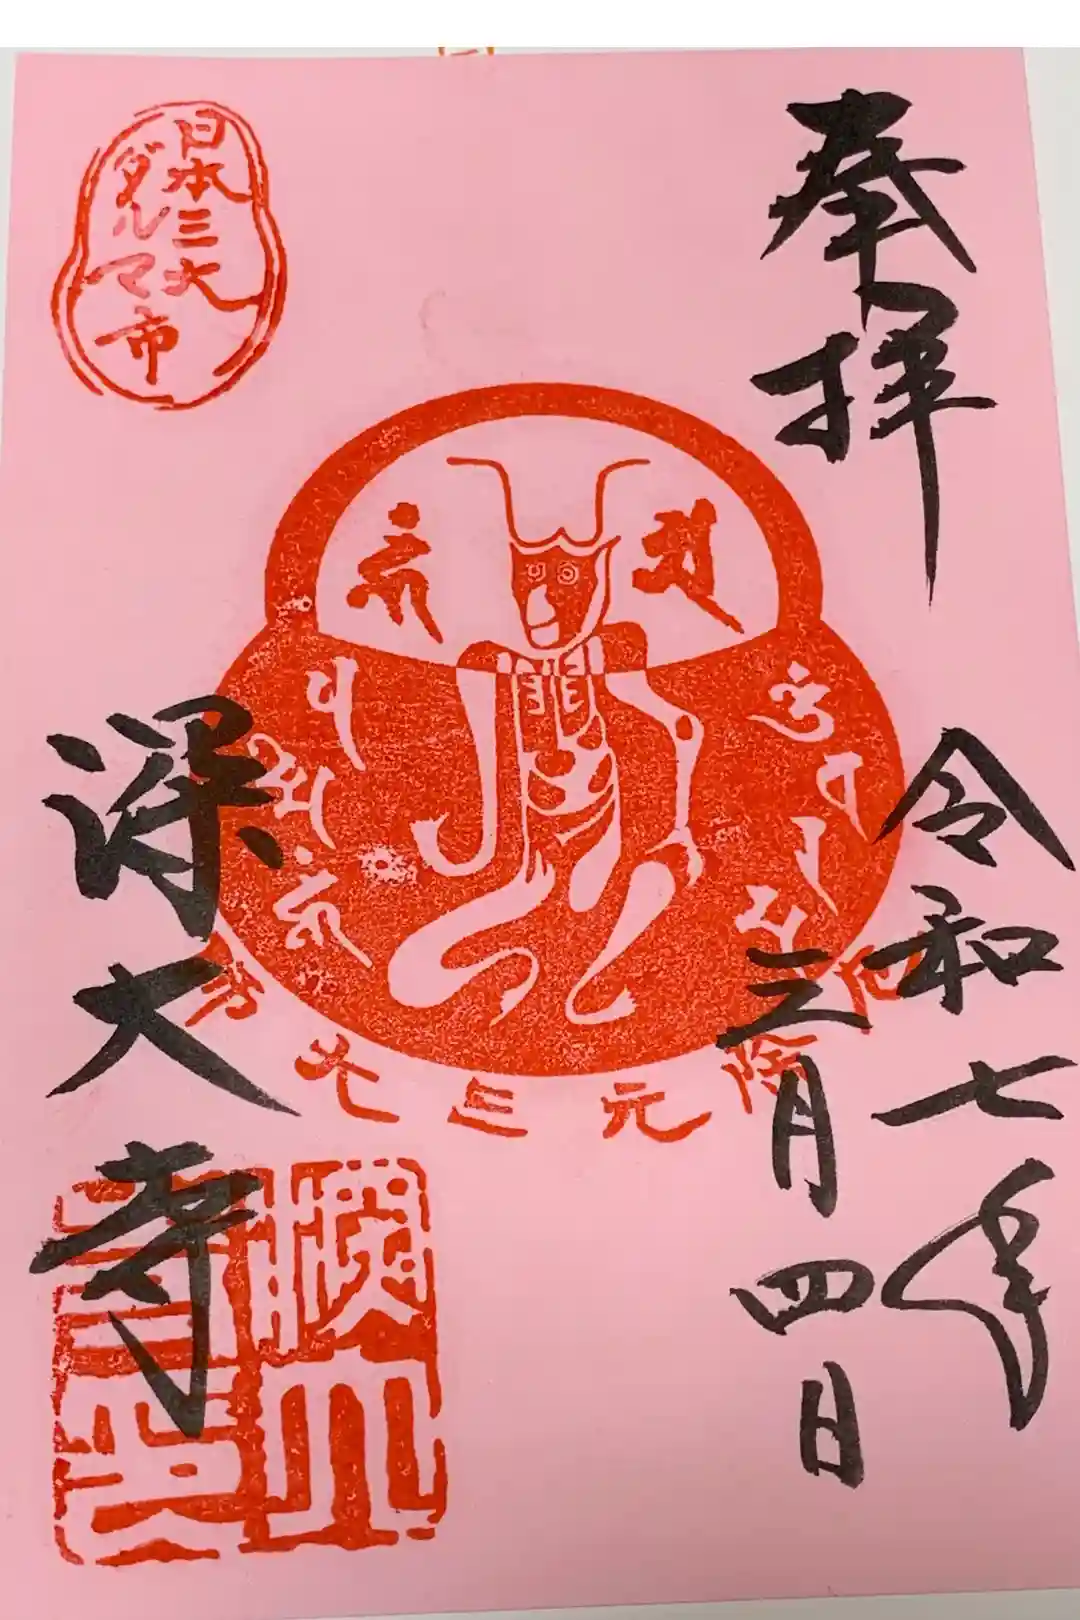 奉拝
令和七年
三月四日
深大寺
日本三大
ダルマ市
元三